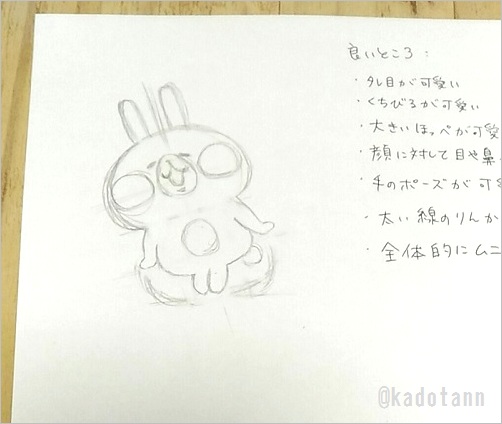 良いところ：
・タレ目が可愛い
・くちびるが可愛い
・大きいほっぺが可愛
・顔に対して目や鼻
・手のポーズが可
・太い線のりんか
・全体的にムニ
@kadotann